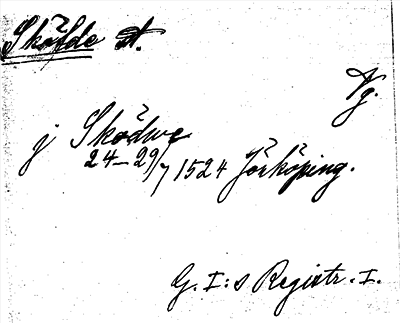 Sköfde st.
Vg.
j Sködwe
24-29/7 1524 Jörköping.
G. I:s Registr. I.